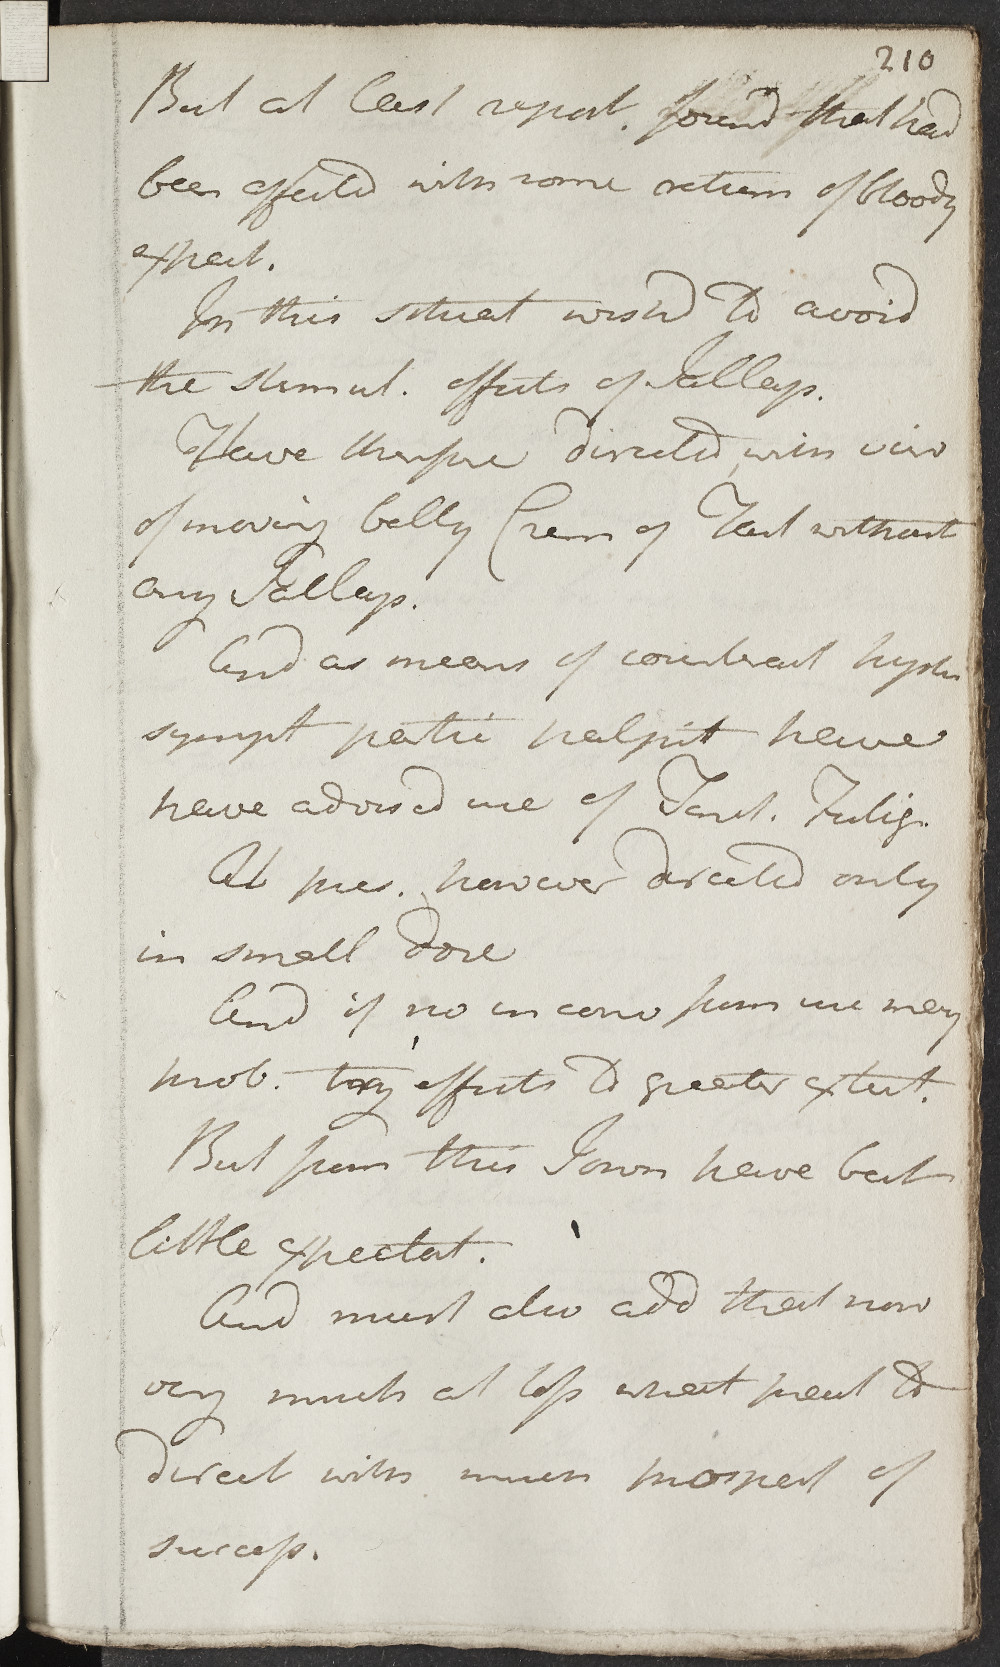 210
But at last report. found that had
been affected with some return of bloody
expect.
In this situat wished to avoid
the stimul. effects of Jallap.
Have therefore directed with view
of moving belly Crem of Tart without
any Jallap.
And as means of counteract hyster
sympt partic palpit have
have advised use of Tinct. Fulig.
At pres. however directed only
in small dose
And if no inconv from use may
prob. try effects to greater extent.
But from this I own have but
little expectat.
And must also add that now
very much at loss what pract to
direct with much prospect of
success.